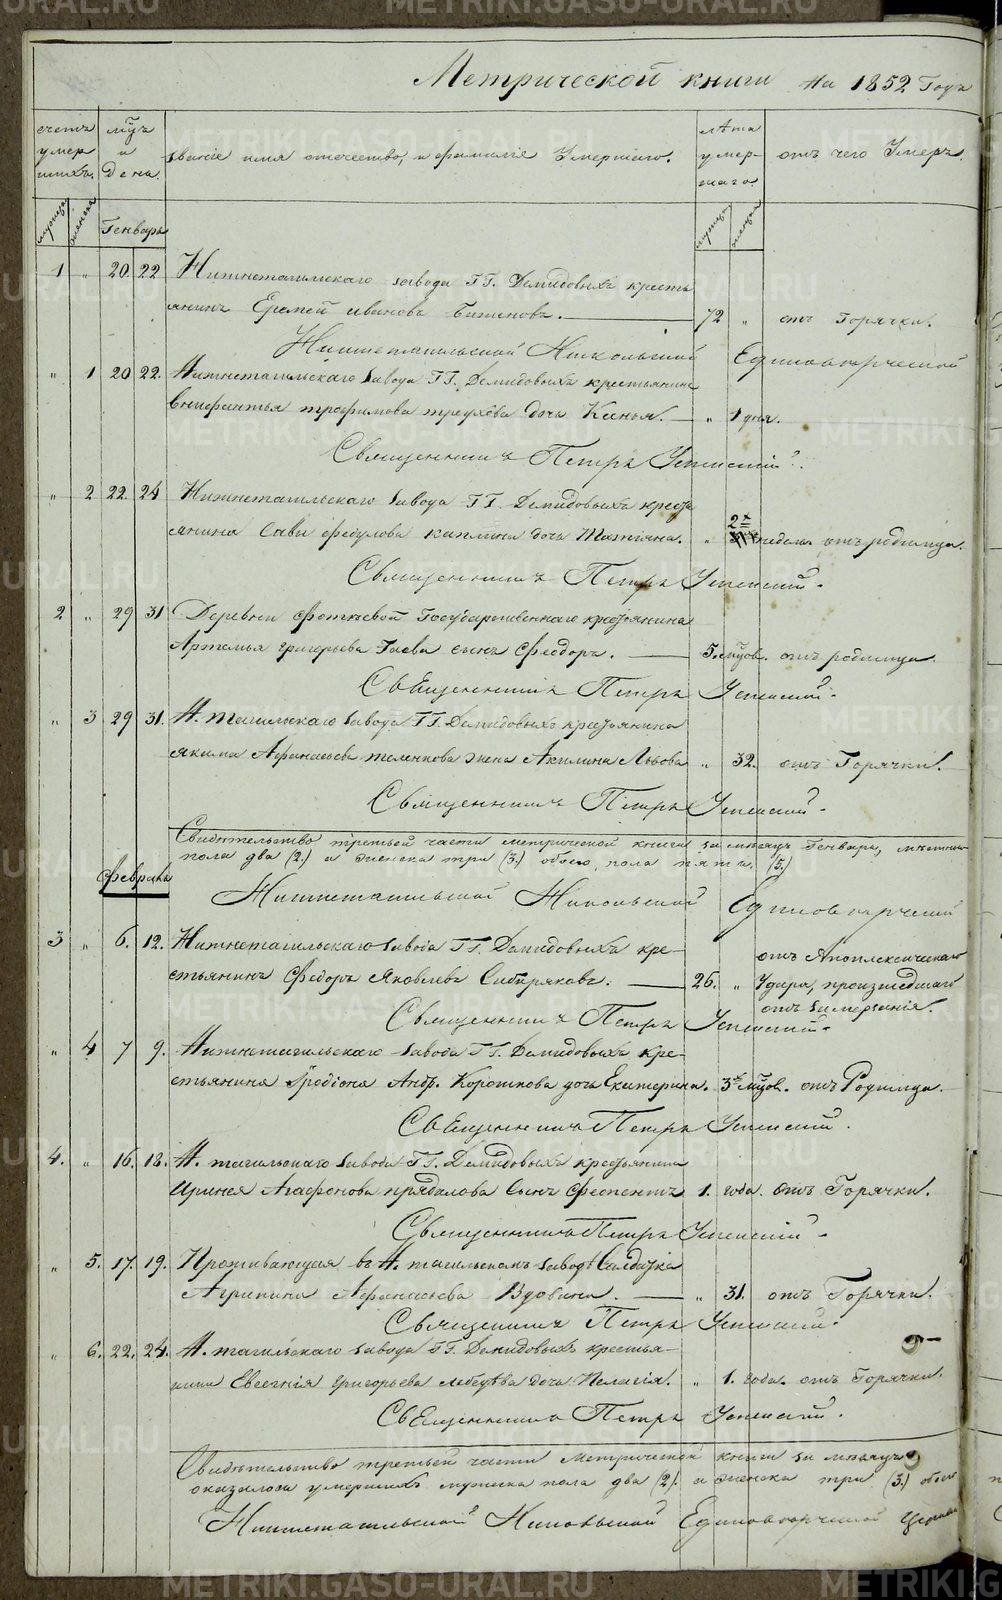 Метрической книги на 1852 Годъ
счетъ умершихъ.
мцъ и день.
званіе имя отечество, и фамиліе Умершаго.
лѣта умершаго.
отъ чего Умеръ.
мужеска
женска
Генварь
мужеска
женска
1 " 20. 22 Нижнетагильскаго завода ГГ. Демидовыхъ кресть
янинъ Еремей Ивановъ 72 " отъ Горячки.
Нижнетагильской Никольской Единоверческой
" 1 20 22. Нижнетагильскаго завода ГГ. Демидовыхъ крестьянина
трофимова дочь Ксенья. " 1 дня.
Священникъ Петръ Успенскій.
" 2 22. 24 Нижнетагильскаго завода ГГ. Демидовыхъ крест
янина Савы федулова дочь Татьяна. " 2х недель. отъ родимца.
Священникъ Петръ Успенскій.
2 " 29 31 Деревни Государственнаго крестьянина
Артемья григорьева Гаева сынъ Феодоръ. 5. мцов. отъ родимца.
Священникъ Петръ Успенскій.
" 3 29 31. Н. тагильскаго завода ГГ. Демидовыхъ крестьянина
якима Афанасьева жена Акилина Львова " 32. отъ Горячки.
Священникъ Петръ Успенскій.
Свидѣтельство третьей части метрической книги за мѣсяцъ Генварь,
пола два (2.) а женска три (3.) обоего пола пять. (5.)
Февраль
Нижнетагильской Никольской Единоверческой
3 " 6. 12. Нижнетагильскаго завода ГГ. Демидовыхъ кре-
стьянинъ Федоръ Яковлевъ Сибиряковъ. 26. "
отъ Апоплексическаго
Удара, произшедшаго
отъ замерзанія.
Священникъ Петръ Успенскій.
" 4 7 9. Нижнетагильскаго завода ГГ. Демидовыхъ кре-
стьянина Іродіона Андр. Короткова дочь Екатерина. 3х мцов. отъ Родимца.
Священникъ Петръ Успенскій.
4. " 16. 18. Н. тагильскаго завода ГГ. Демидовыхъ крестьянина
Иринея Агафонова сынъ 1. года. отъ Горячки.
Священникъ Петръ Успенскій.
" 5. 17. 19. Проживающая въ Н. тагильскомъ заводѣ Салдатка
Агрипина Афанасьева Вдовина. " 31. отъ Горячки.
Священникъ Петръ Успенскій.
" 6. 22. 24. Н. тагильскаго завода ГГ. Демидовыхъ крестья-
нина Евсегнія григорьева лебедева дочь Пелагія. " 1. года. отъ Горячки.
Священникъ Петръ Успенскій.
Свидѣтельство третьей части Метрической книги за мѣсяцъ
оказалось умершихъ мужеска пола два (2). а женска три (3.) обоего
Нижнетагильской Никольской Единоверческой Церкви
METRIKI.GASO-URAL.RU